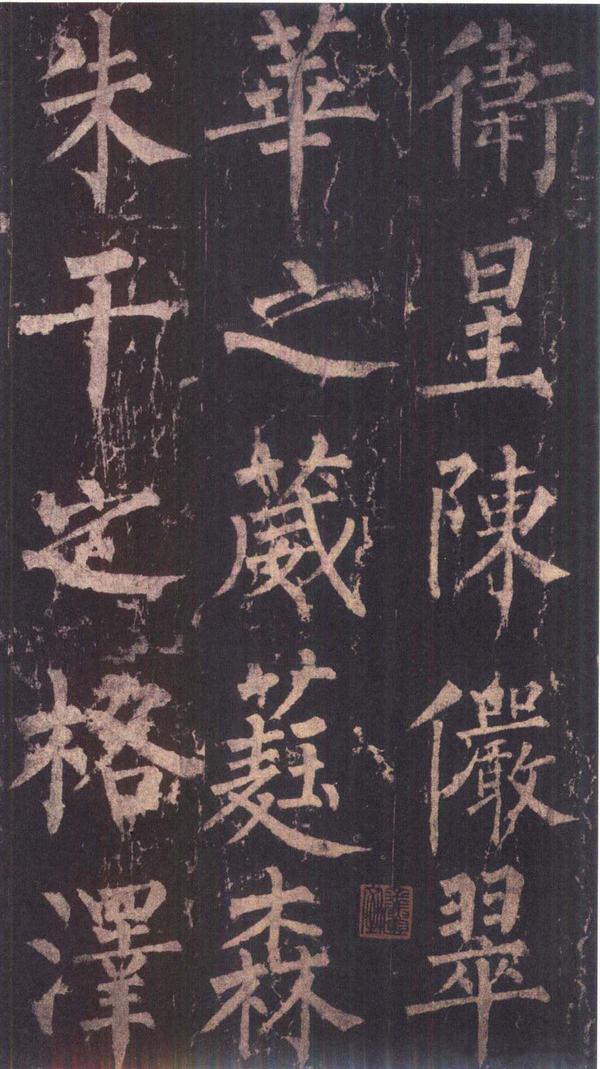 衛星陳儼翠
華之葳蕤森
朱干定格澤